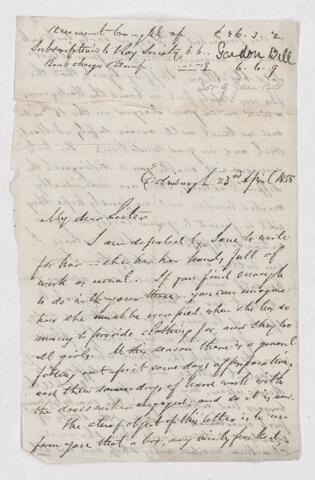 Account brought up £36.3.2
Subscription to Ray Society 6.6. Gordon Bell
Bank charges & Stamp 9 6.6.9
Son of Jane Bell
Edinburgh 23rd April 1858
My dear Sister
I am deputed by Jane to write
for her – she has her hands full of
work as usual. If you find enough
to do with your three, you can imagine
how she must be occupied when she has so
many to provide clothing for, and they too
all girls. At this season there is a general
fitting out first some days of preparation,
and then some days of hard work with
the dressmaker engaged, and so it is now.
The chief object of this letter is to
inform you that a box, very nicely packed